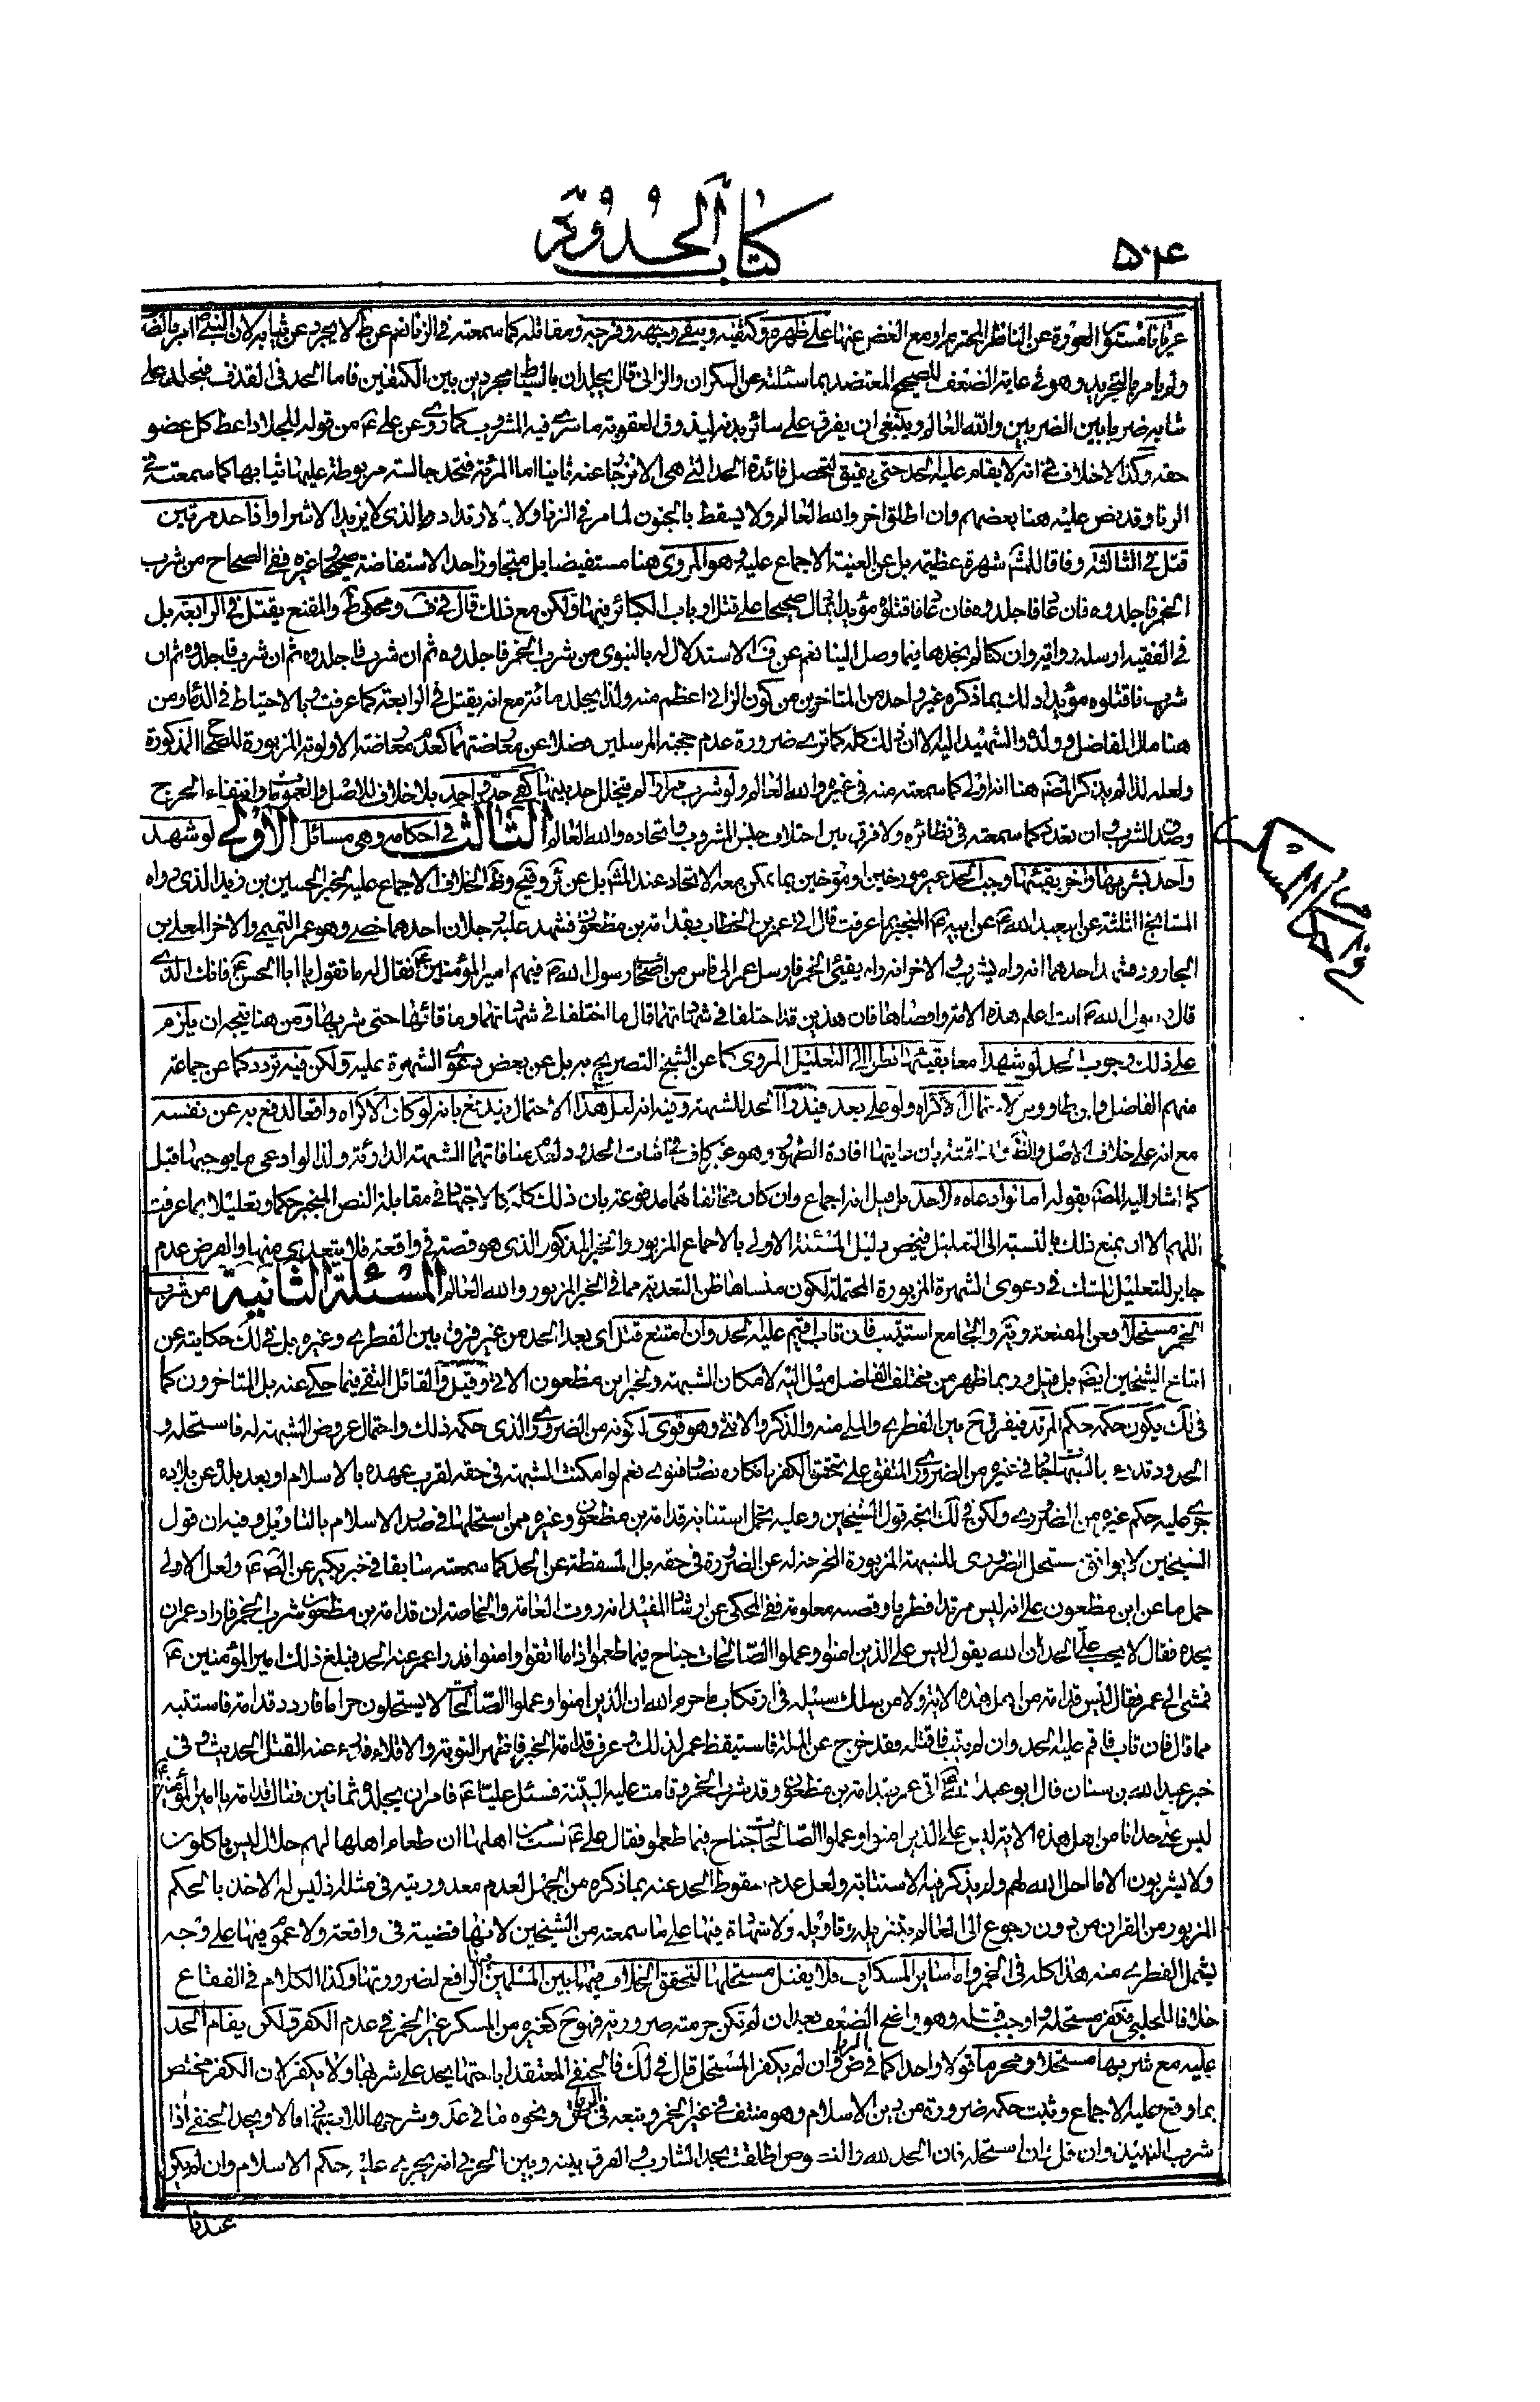 ۵۰۴
كتاب الحدود
عريانا مستور العورة عن الناظر المحترم او مع الغض عنها على ظهره وكتفيه ويبقى وجهه وفرجه ومقاتله كما سمعته فى الزنا نعم عن ط لا يجرد عن ثيابه لان النبى ص امر بالضرب
ولم يامر بالتجريد وهو فى غاية الضعف للصحيح المعتضد بما سئلته عن السكران والزانى قال يجلدان بالسياط مجردين بين الكتفين فاما الحد فى القذف فيجلد على
ثيابه ضربا بين الضربين والله العالم وينبغى ان يفرق على سائر بدنه ليذوق العقوبة ما سرى فيه المشروب كما روى عن على ع من قوله للجلاد اعط كل عضو
حقه وكذا لا خلاف فى انه لا يقام عليه الحد حتى يفيق لتحصل فائدة الحد التى هى الانزجار عنه ثانيا اما المرئة فتحد جالسة مربوطة عليها ثيابها كما سمعته فى
الزنا وقد نص عليه هنا بعضهم وان اطلق اخر والله العالم ولا يسقط بالجنون لما مر فى الزنا ولا بالارتداد الذى لا يزيد الا شرا واذا حد مرتين
قتل فى الثالثة وفاقا للمش شهرة عظيمة بل عن الغنية الاجماع عليه وهو المروى هنا مستفيضا بل متجاوزا حد الاستفاضة صحيحا وغيره ففى الصحاح من شرب
الخمر فاجلدوه فان عاد فاجلدوه فان عاد فاقتلوه مؤيدا بما دل صحيحا على قتل ارباب الكبائر فيها ولكن مع ذلك قال فى ف ومحكى ط والمقنع يقتل فى الرابعة بل
فى الفقيه ارسله رواية وان كنا لم نجدها فيما وصل الينا نعم عن ف الاستدلال له بالنبوى من شرب الخمر فاجلدوه ثم ان شرب فاجلدوه ثم ان شرب فاجلدوه ثم ان
شرب فاقتلوه مؤيدا ذلك بما ذكره غير واحد من المتاخرين من كون الزانى اعظم منه ولذا يجلد مائة مع انه يقتل فى الرابعة كما عرفت وبالاحتياط فى الدماء ومن
هنا مال الفاضل وولده والشهيد اليه الا ان ذلك كله كما ترى ضرورة عدم حجية المرسلين فضلا عن معارضتهما كعدم معارضة الاولوية المزبورة للصحاح المذكورة
ولعله لذا لم يذكر المص هنا انه اولى كما سمعته منه فى غيره والله العالم ولو شرب مرارا لم يتخلل حد بينها كفى حد واحد بلا خلاف للاصل والعموم وانتفاء الحرج
وصدق الشرب وان تعدد كما سمعته فى نظائره ولا فرق بين اختلاف جنس المشروب واتحاده والله العالم الثالث فى احكامه وهى مسائل الاولى لو شهد
واحد بشربها واخر بقيئها وجب الحد غير مورخين او مؤرخين بما يمكن معه الاتحاد عند المش بل عن ئر وقيح وظ الخلاف الاجماع عليه لخبر الحسين بن زيد الذى رواه
المشايخ الثلثة عن ابى عبد الله ع عن ابيه ع المنجبر بما عرفت قال اتى عمر بن الخطاب بقدامة بن مظعون فشهد عليه رجلان احدهما خصى وهو عمر التميمى والاخر المعلى بن
الجارود فشهد احدهما انه راه يشرب والاخر انه راه يقيئى الخمر فارسل عمر الى ناس من اصحاب رسول الله ص فيهم امير المؤمنين ع فقال له ما تقول يا ابا الحسن ع فانك الذى
قال رسول الله ص انت اعلم هذه الامة واقضاها فان هذين قد اختلفا فى شهادتهما قال ما اختلفا فى شهادتهما وما قائها حتى شربها ومن هنا يتجه ان يلزم
على ذلك وجوب الحد لو شهدا معا بقيئها نظرا الى التعليل المروى كما عن الشيخ التصريح به بل عن بعض دعوى الشهرة عليه ولكن فيه تردد كما عن جماعة
منهم الفاضل وابن طاووس لاحتمال الاكراه ولو على بعد فيدرؤا الحد للشبهة وفيه انه لعل هذا الاحتمال يندفع بانه لو كان الاكراه واقعا لدفع به عن نفسه
مع انه على خلاف الاصل والظ
كما اشار اليه المص بقوله اما لو ادعاه فلا حد بل قيل انه اجماع وان كان مدفوعة بان ذلك كله كالاجتهاد فى مقابلة النص المنجبر حكما وتعليلا بما عرفت
اللهم الا ان يمنع ذلك بالنسبة الى التعليل فيخص دليل المسئلة الاولى بالاجماع المزبور والخبر المذكور الذى هو قصة فى واقعة فلا يتعدى منها والفرض عدم
جابر للتعليل للشك فى دعوى الشهرة المزبورة المحتملة لكون منشاها ظن التعدية مما فى الخبر المزبور والله العالم المسئلة الثانية من شرب
الخمر مستحلا فعن المقنعة ويه والجامع استتيب فان تاب اقيم عليه الحد وان امتنع قتل اى بعد الحد من غير فرق بين الفطرى وغيره بل فى لك حكايته عن
اتباع الشيخين ايضا بل قيل وربما ظهر من مختلف الفاضل ميل اليه لامكان الشبهة ولخبر ابن مظعون الاتى وقيل والقائل التقى فيما حكى عنه بل المتاخرون كما
فى لك يكون حكمه حكم المرتد فيفرق ح بين الفطرى والملى منه والذكر والانثى وهو قوى لكونه من الضرورى والذى حكمه ذلك واحتمال عروض الشبهة له فاستحله و
الحدود تدرء بالشبهات جار فى غيره من الضرورى المتفق على تحقق الكفر بانكاره نصا وفتوى نعم لو امكنت الشبهة فى حقه لقرب عهده بالاسلام او بعد بلده عن بلاده
جرى عليه حكم غيره من الضرورى ولكن فى لك اتجه قول الشيخين وعليه تحمل استتابة قدامة بن مظعون وغيره ممن استحلها فى صدر الاسلام بالتاويل وفيه ان قول
الشيخين لا يوافق مستحل الضرورى للشبهة المزبورة المخرجة له عن الضرورة فى حقه بل المسقطة عن الحد كما سمعته سابقا فى خبر بكير عن الص ع ولعل الاولى
حمل ما عن ابن مظعون على انه ليس مرتدا فطريا وقصته معلومة ففى المحكى عن ارشاد المفيد انه روت العامة والخاصة ان قدامة بن مظعون شرب الخمر فاراد عمر ان
يحده فقال لا يجب على الحد ان الله يقول ليس على الذين امنوا وعملوا الصالحات جناح فيما طعموا اذا ما اتقوا وامنوا فدرا عمر عنه الحد فبلغ ذلك امير المؤمنين ع
فمشى الى عمر فقال ليس قدامة من اهل هذه الاية ولا من سلك سبيله فى ارتكاب ما حرم الله ان الذين امنوا وعملوا الصالحات لا يستحلون حراما فاردد قدامة فاستتبه
مما قال فان تاب فاقم عليه الحد وان لم يتب فاقتله فقد خرج عن الملة فاستيقظ عمر لذلك وعرف قدامة الخبر فاظهر التوبة والاقلاع فدرء عنه القتل الحديث وفى
خبر عبد الله بن سنان قال ابو عبد الله ع اتى عمر بقدامة بن مظعون وقد شرب الخمر وقامت عليه البينة فسئل عليا ع فامر ان يجلده ثمانين فقال قدامة يا امير المؤمنين
ليس على حد انا من اهل هذه الاية ليس على الذين امنوا وعملوا الصالحات جناح فيما طعموا فقال على ع لست من اهلها ان طعام اهلها لهم حلال ليس ياكلون
ولا يشربون الا ما احل الله لهم ولم يذكر فيه الاستتابة ولعل عدم سقوط الحد عنه بما ذكره من الجهل لعدم معذوريته فى مثله اذ ليس له الاخذ بالحكم
المزبور من القران من دون رجوع الى العالم بتنزيله وتاويله ولا شهادة فيها على ما سمعته من الشيخين لانها قضية فى واقعة ولا عموم فيها على وجه
يشمل الفطرى منه هذا كله فى الخمر واما سائر المسكرات فلا يقتل مستحلها لتحقق الخلاف فيها بين المسلمين الرافع لضرورتها وكذا الكلام فى الفقاع
خلافا للحلبى فكفر مستحله واوجب قتله وهو واضح الضعف بعد ان لم تكن حرمته ضرورية فهو ح كغيره من المسكر غير الخمر فى عدم الكفر ولكن يقام الحد
عليه مع شربها مستحلا ومحرما قولا واحدا كما فى ض وان لم يكفر المستحل قال فى لك فالحنفى المعتقد اباحتها يحد على شربها ولا يكفر لان الكفر مختص
بما وقع عليه الاجماع وثبت حكمه ضرورة من دين الاسلام وهو منتف فى غير الخمر وتبعه فى الرياض ونحوه ما فى عد وشرحيها للاصبهانى اما الاول ويحد الحنفى اذا
شرب النبيذ وان قل وان استحله فان الحد لله والنصوص اطلقت بحد الشارب والفرق بينه وبين الحربى انه يجرى عليه حكم الاسلام وان لم يكن
عندنا